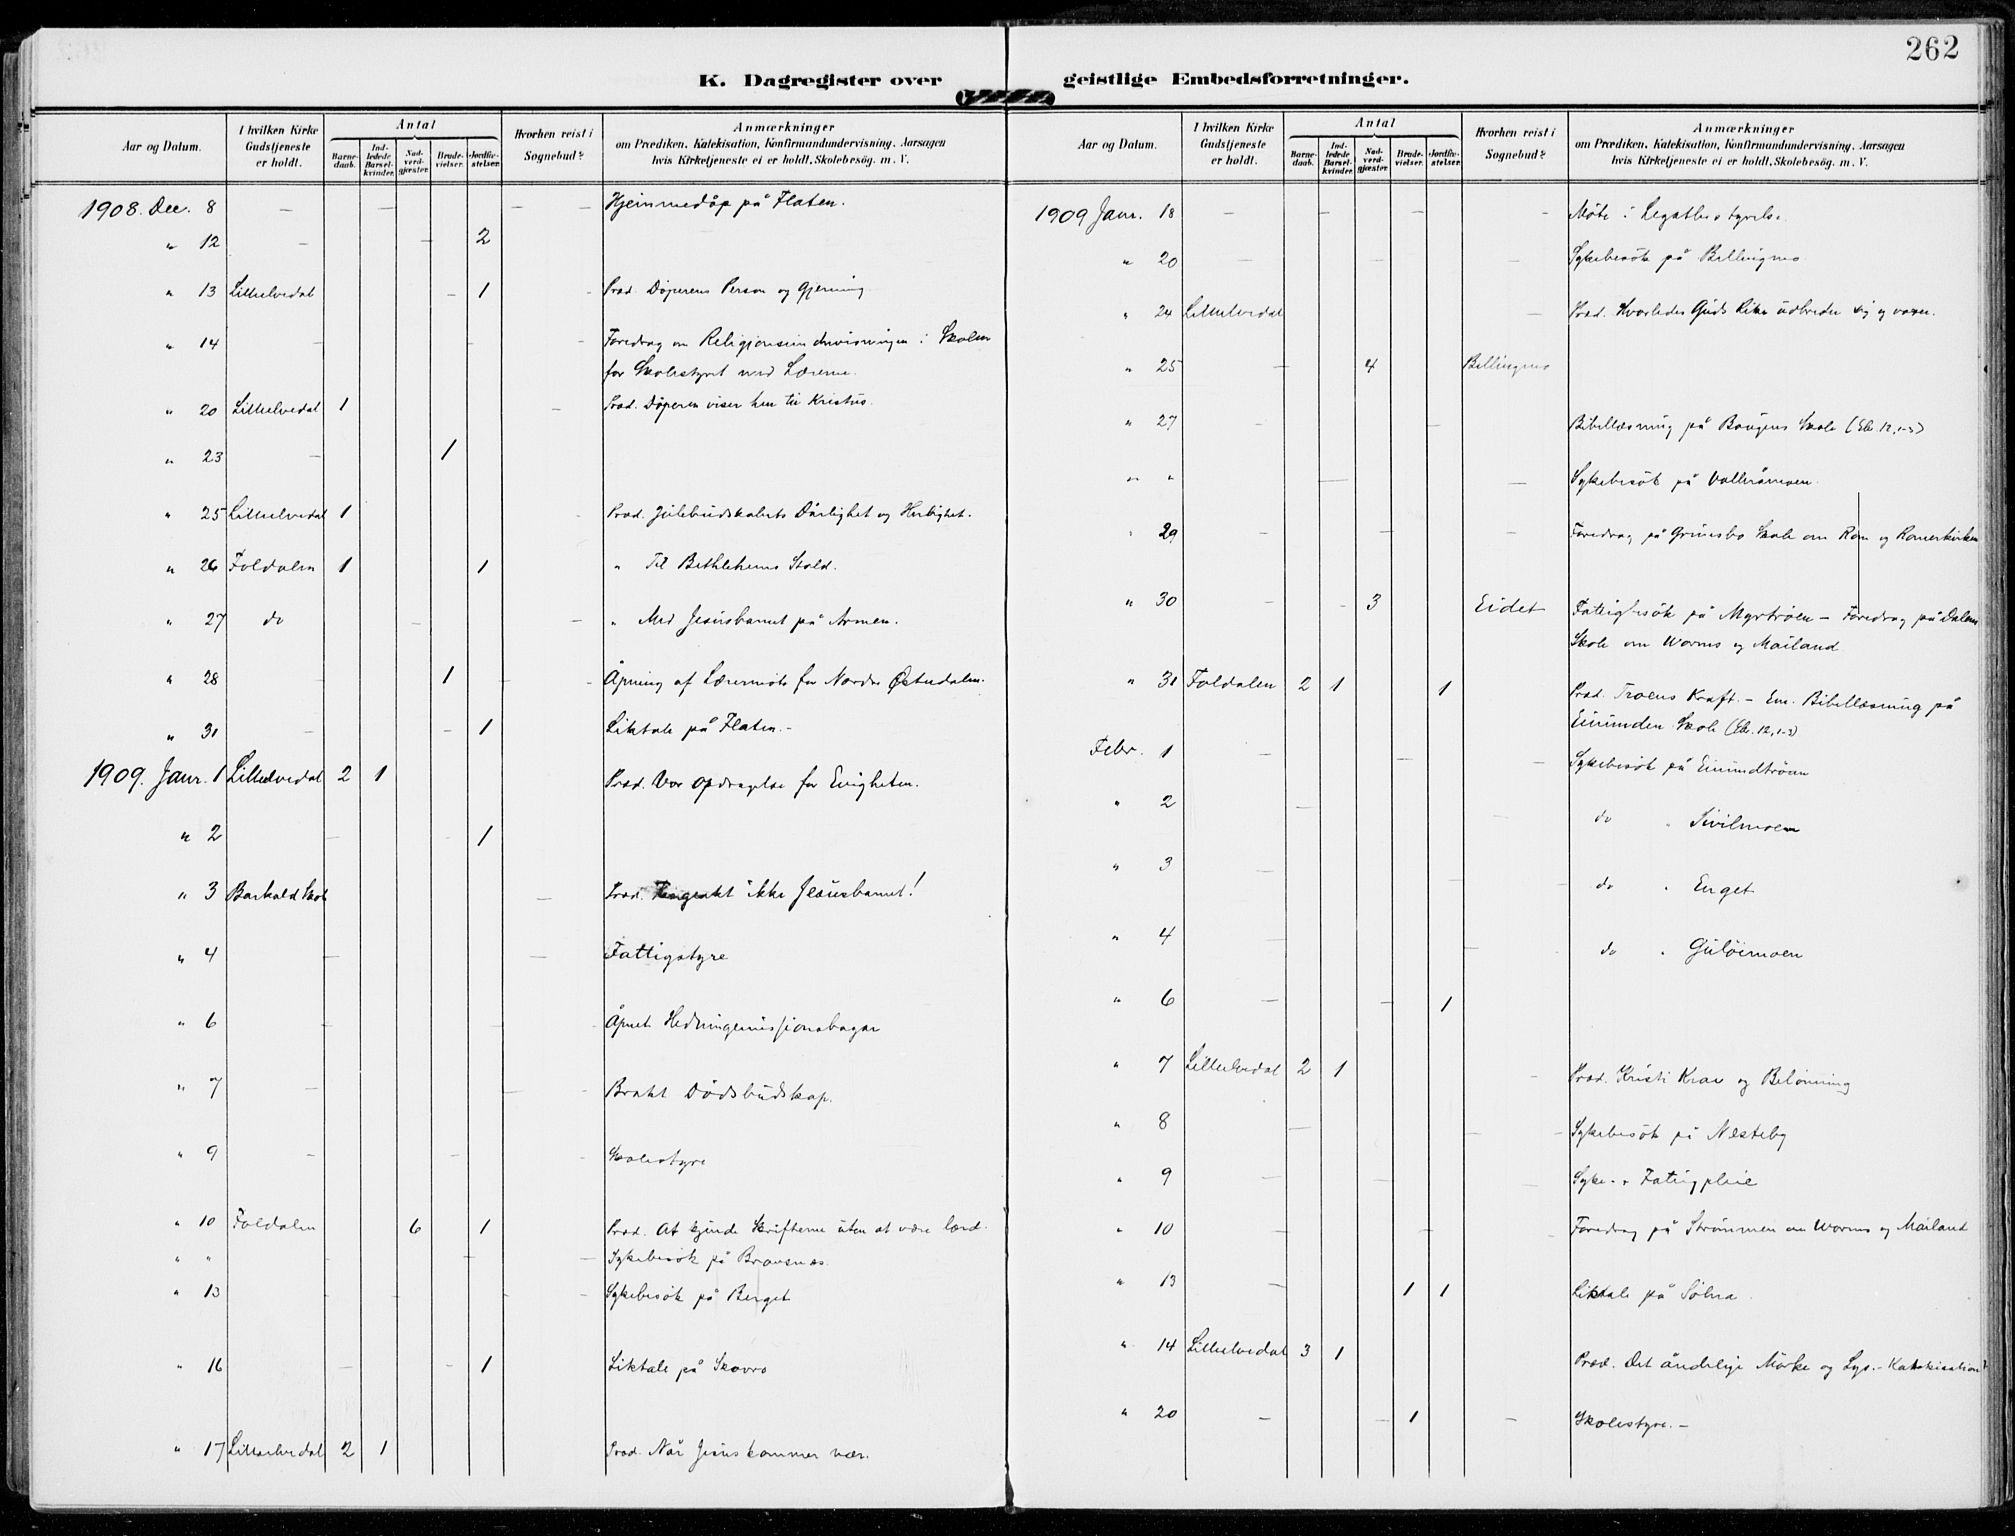 262
K. Dagregister over geistlige Embedsforretninger.
Aar og Datum. I hvilken Kirke Gudstjeneste er holdt. Antal Barnedaab. Indledede Barselkvinder. Nadverdgjæster. Brudevielser. Jordfæstelser. Hvorhen reist i Sognebud? Anmærkninger om Prædiken, Katekisation, Konfirmandundervisning, Aarsagen hvis Kirketjeneste ei er holdt, Skolebesög. m. V.
1908. Dec. 8 — — — — Hjemmedåp på Flaten.
" 12 — — 2
" 13 Lilleelvedal — 1 - Præd. Døperens Person og Gjerning
" 14 — — - Foredrag om Religionsundervisningen i Skolen
for Skolestyret med Lærerne.
" 20 Lilleelvedal 1 — Præd. Døperen viser hen til Kristus.
" 23 — 1
" 25 Lilleelvedal 1 - Præd. Julebudskabets Dårlighet og Herlighet.
" 26 Foldalen 1 1 " Til Bethlehems Stald.
" 27 do — — " Med Jesusbarnet på Armen.
" 28 — 1 — Åpning af Lærermøte for Nordre Østerdalen.
" 31 — — 1 Liktale på Flaten.-
1909. Janr. 1 Lilleelvedal 2 1 Præd. Vor Opdragelse for Evigheten.
" 2 — — 1
" 3 Barkald Skole — Præd. ikke Jesusbarnet!
" 4 — — Fattigstyre
" 6 — — - Åpnet Hedningemissionsbazar
" 7 — — — Brakt Dødsbudskap.
" 9 - — - Skolestyre
" 10 Foldalen 6 1 Præd. At kjende Skrifterne uten at være lærd.
" " - — — Sykebesök på Brænsnes.
" 13 — — - - Sykebesök på Berget
" 16 — - 1 Liktale på Skovro
" 17 Lilleelvedal 2 1 Præd. Når Jesus kommer nær.
Aar og Datum. I hvilken Kirke Gudstjeneste er holdt. Antal Barnedaab. Indledede Barselkvinder. Nadverdgjæster. Brudevielser. Jordfæstelser. Hvorhen reist i Sognebud? Anmærkninger om Prædiken, Katekisation, Konfirmandundervisning, Aarsagen hvis Kirketjeneste ei er holdt, Skolebesög. m. V.
1909 Janr. 18 — — — - Möte i Legatbestyrelse
" 20 — — — Sykebesök på Bellingmo
" 24 Lilleelvedal — Præd. Hvorledes Guds Rike udbreder sig og vokser.
" 25 — 4 Bellingmo
" 27 — — Bibellæsning på Haugens Skole (Eb. 12,1-3)
" " — — Sykebesök på Volheimoen.
" 29 — — — Foredrag på Grimsbo Skole om Rom og Romerkirken
" 30 — - 3 Eidet Fattigbesök på Myrtrøen – Foredrag på Dalens
Skole om Worms og Mailand
" 31 Foldalen 2 1 1 Præd. Troens Kraft. – Em. Bibellæsning på
Einunden Skole (Eb. 12,1-3)
Febr. 1 — — — Sykebesök på Einundtröen
" 2 — — do " Sivilmoen
" 3 — — do " Enget
" 4 — — do " Gulöimoen
" 6 — — 1
" 7 Lilleelvedal 2 1 - Præd. Kristi Krav og Belönning
" 8 — — - Sykebesök på Nesteby
" 9 — — — Syke- & Fattigpleie
" 10 — — — Foredrag på Strömmen om Worms og Mailand
" 13 — 1 1 Liktale på Sölna.
" 14 Lilleelvedal 3 1 Præd. Det åndelige Mörke og Lys. – Katekisation
" 20 — — 1 — Skolestyre. –